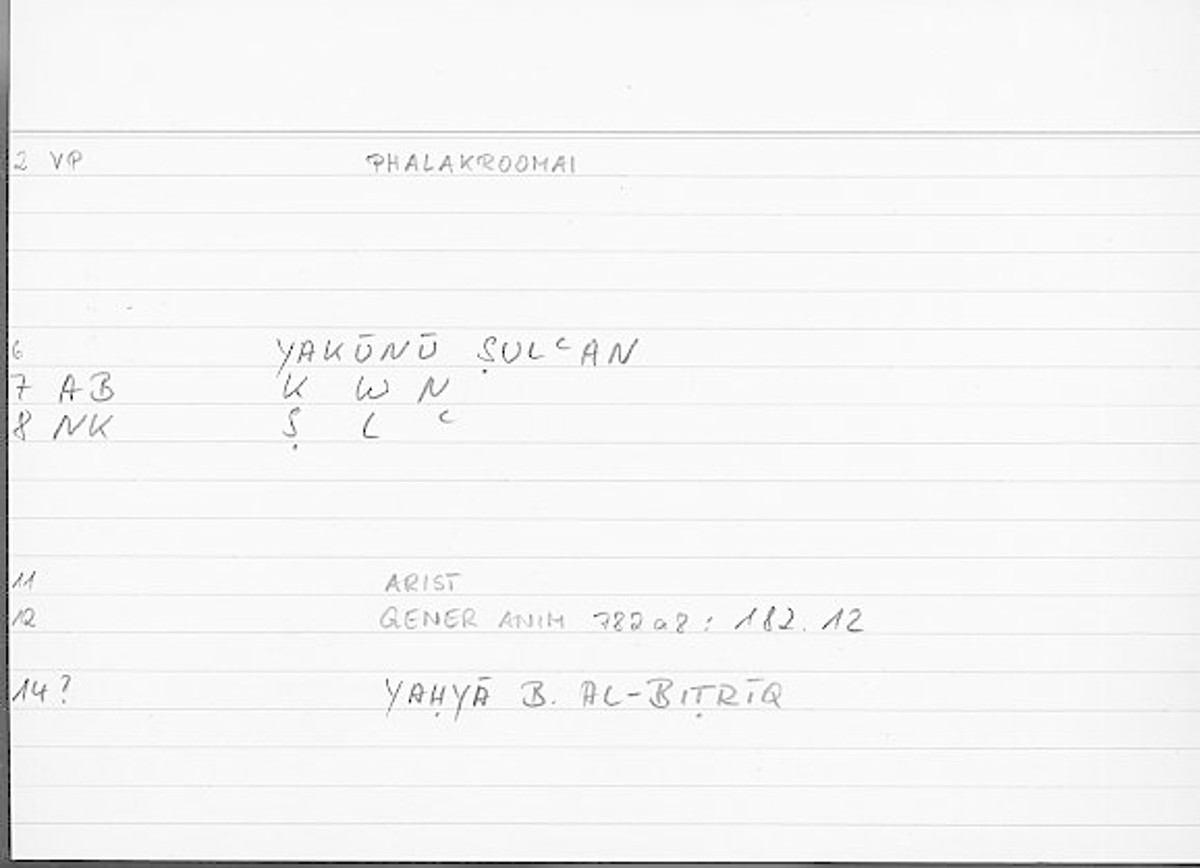 2 VP PHALAKROOMAI
6 YAKŪNŪ ṢULʿAN
7 AB K W N
8 NK Ṣ L ʿ
11 ARIST
12 GENER ANIM 782a8 : 182.12
14? YAḤYĀ B. AL-BIṬRĪQ